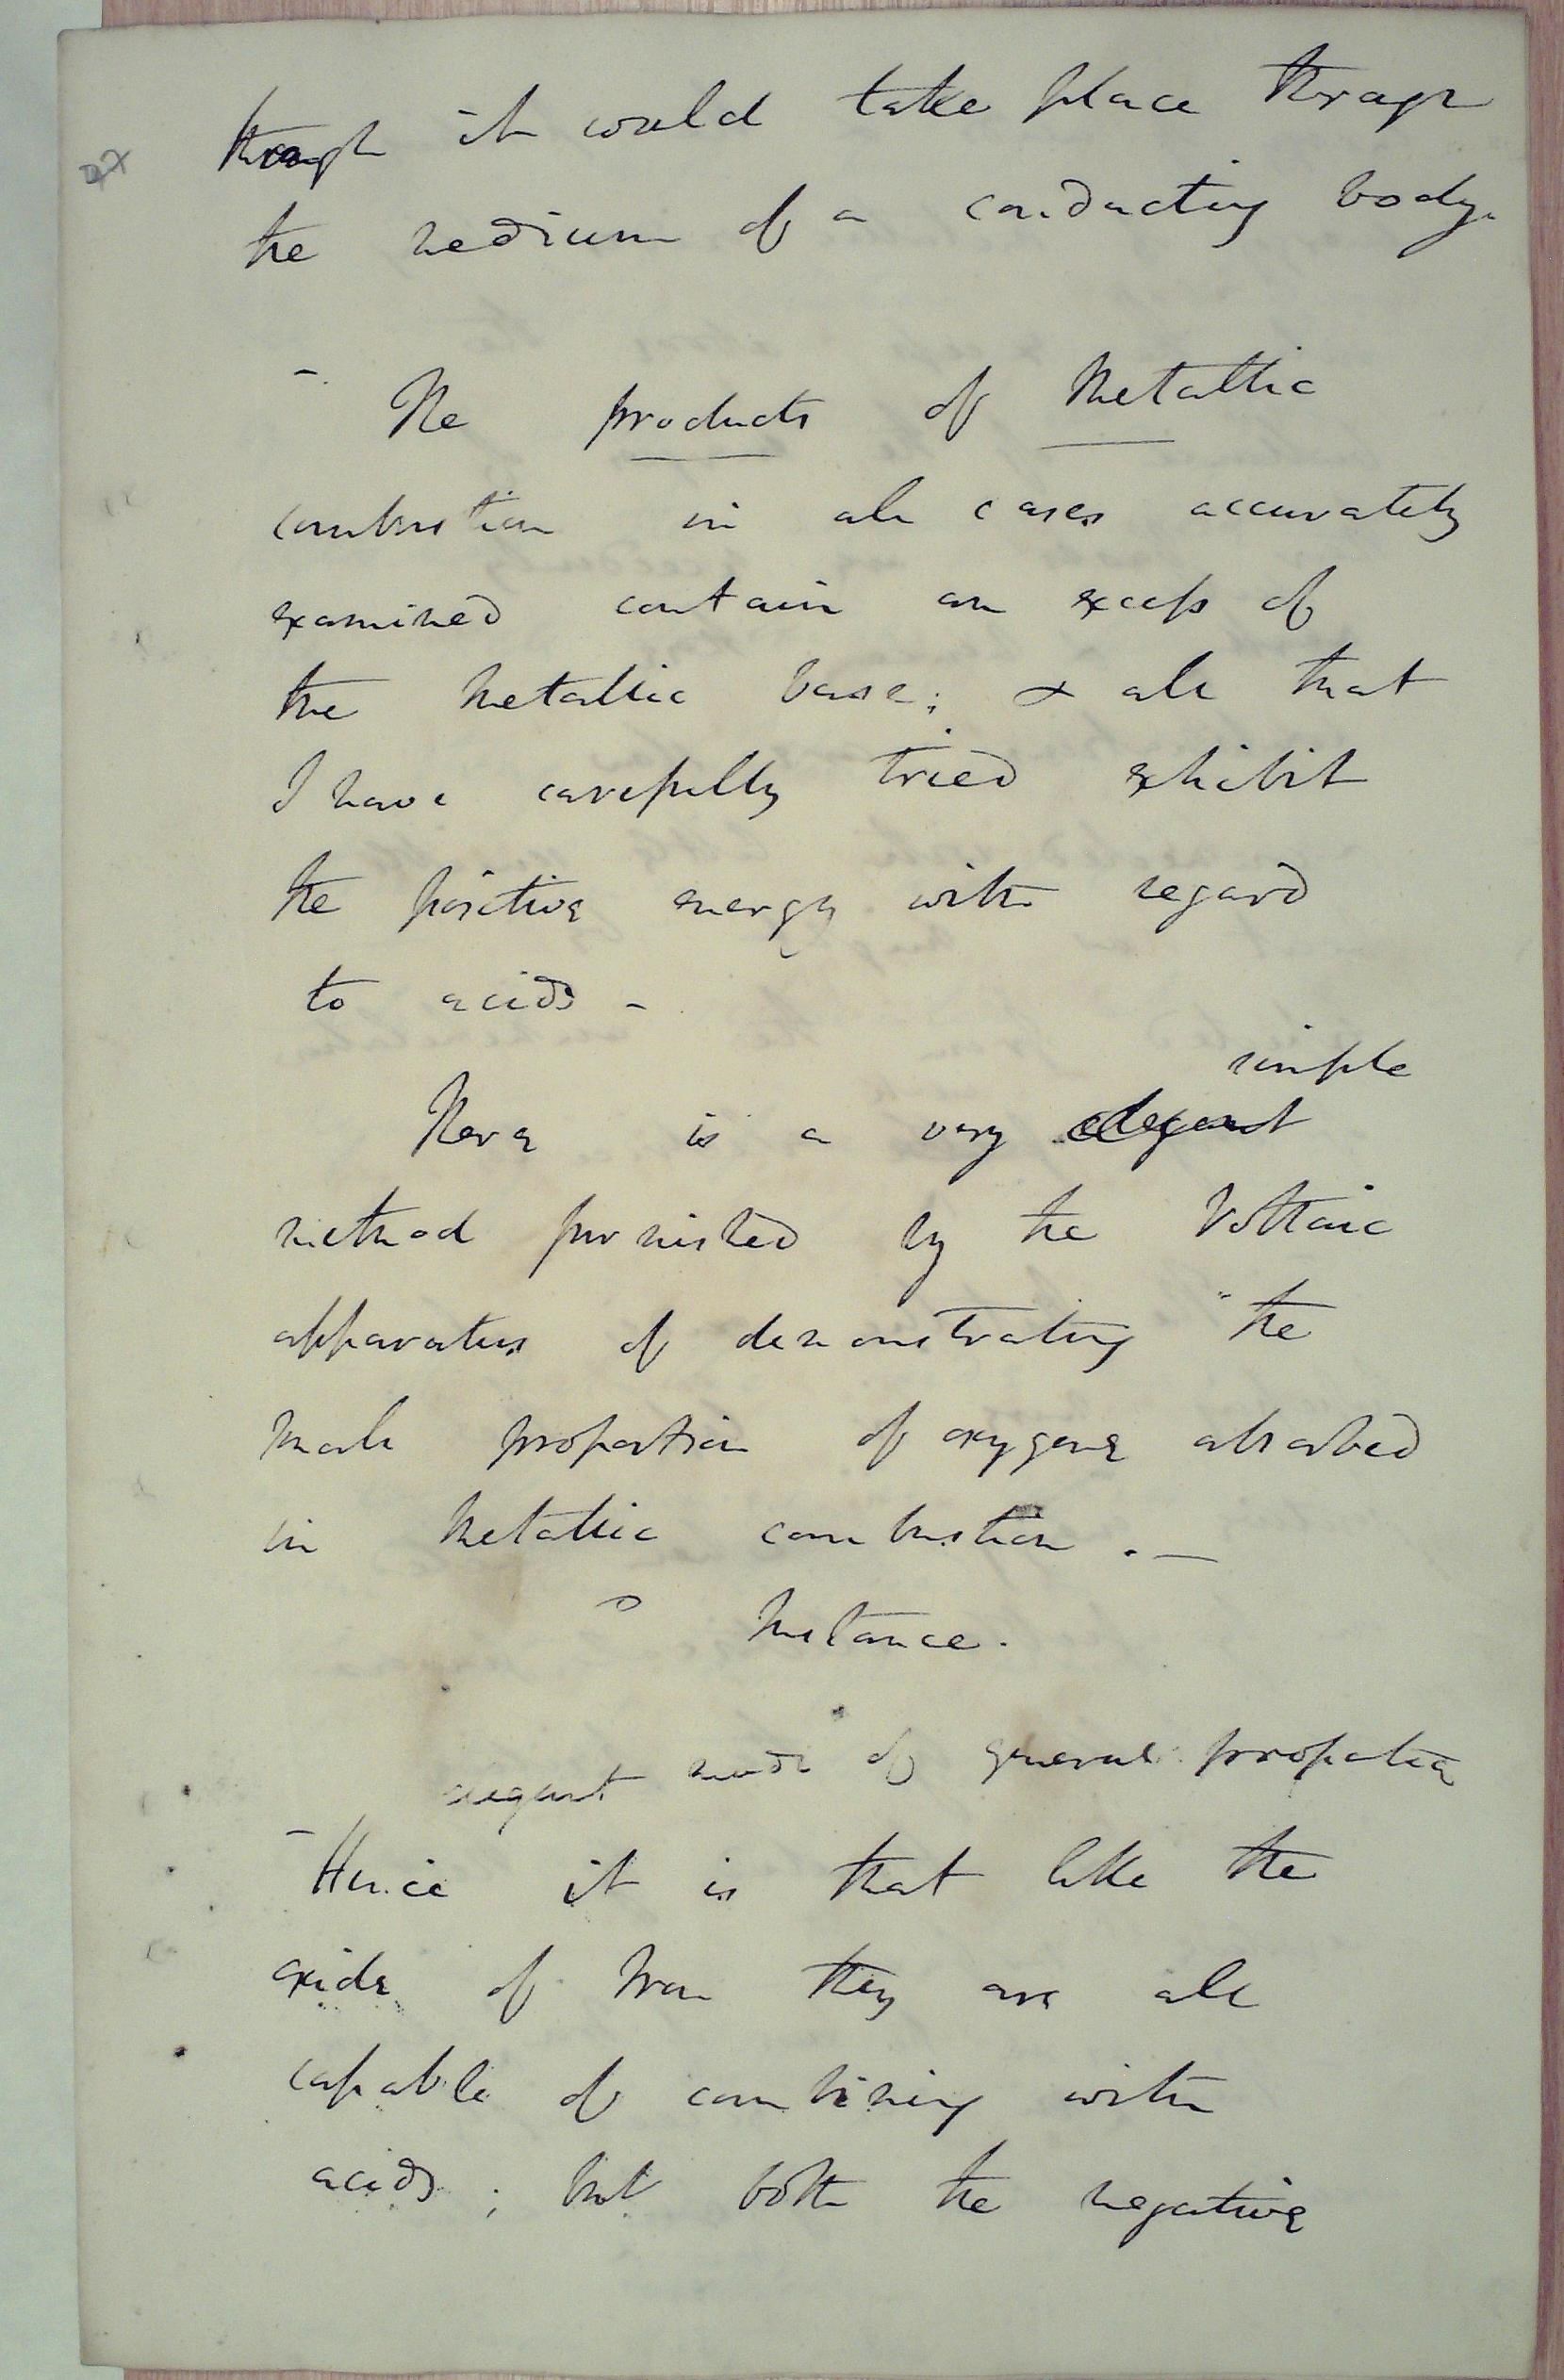 though it would take place through
the medium of a conducting body.
- The products of Metallic
combustion in all cases accurately
examined contain an excess of
the metallic base; & all that
I have carefully tried exhibit
the positive energy with regard
to acids -
simple
There is a very elegant
method furnished by the Voltaic
apparatus of demonstrating the
small proportion of oxygene absorbed
in Metallic combustion . —
Instance.
elegant mode of general
- Hence it is that like the
oxide of Iron they are all
capable of combining with
acids ; but both the negative